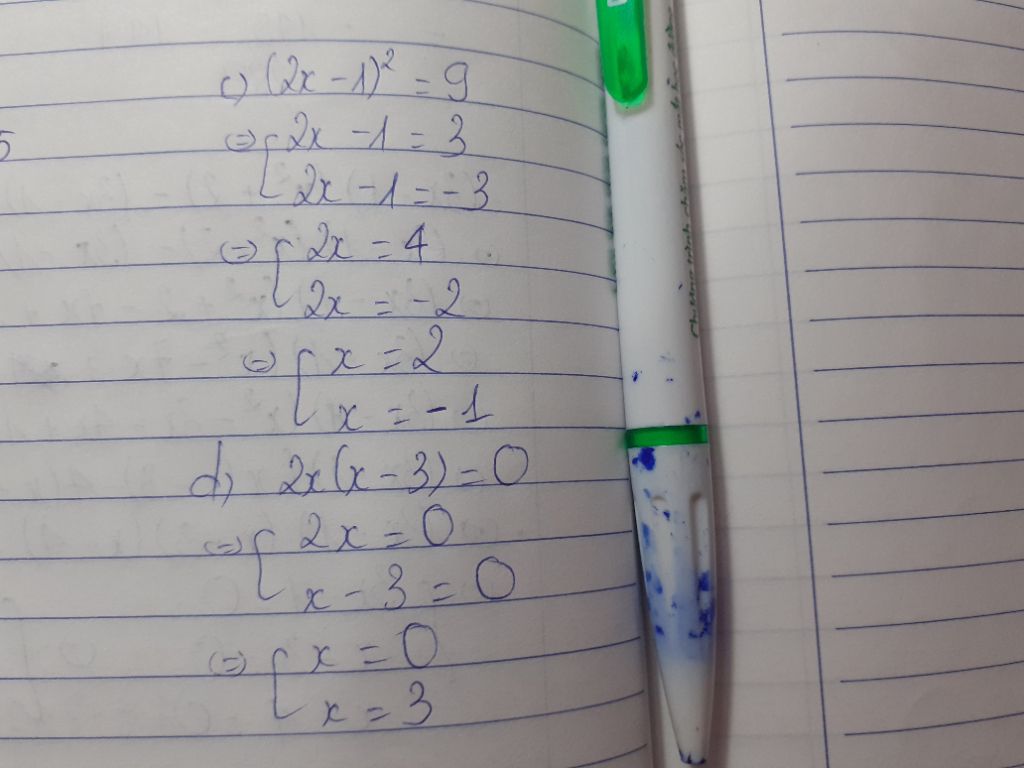 c) (2x - 1)² = 9
⇔ [ 2x - 1 = 3
2x - 1 = -3
⇔ [ 2x = 4
2x = -2
⇔ [ x = 2
x = -1
d) 2x(x - 3) = 0
⇔ [ 2x = 0
x - 3 = 0
⇔ [ x = 0
x = 3
5